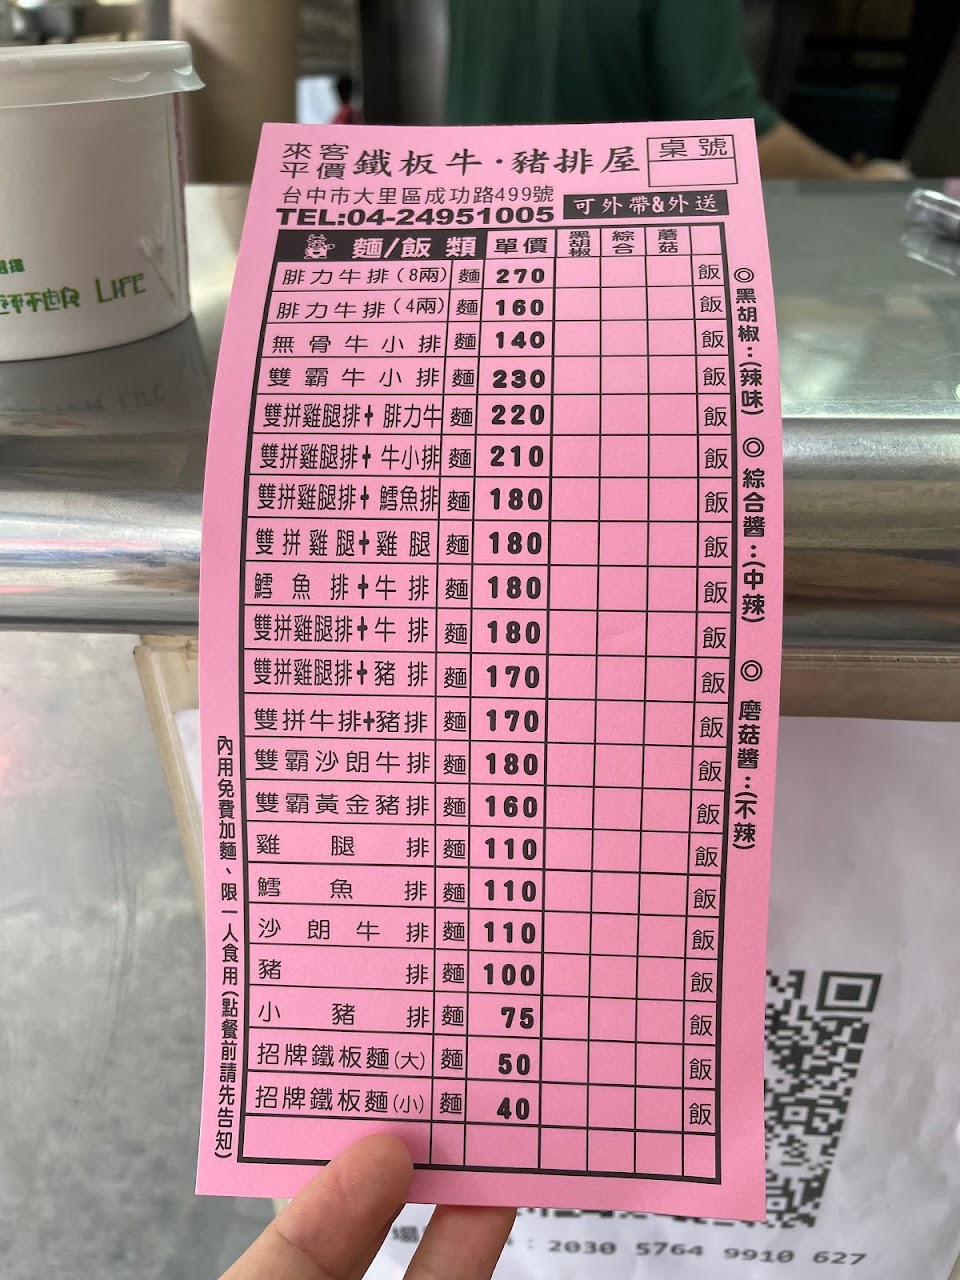 來客
平價 鐵板牛·豬排屋 桌號
台中市大里區成功路499號
TEL:04-24951005 可外帶&外送
麵/飯 類 單價 黑胡椒 綜合 蘑菇
腓力牛排(8兩) 麵 270 飯
腓力牛排(4兩) 麵 160 飯
無骨牛小排 麵 140 飯
雙霸牛小排 麵 230 飯
雙拼雞腿排+腓力牛 麵 220 飯
雙拼雞腿排+牛小排 麵 210 飯
雙拼雞腿排+鱈魚排 麵 180 飯
雙拼雞腿+雞腿 麵 180 飯
鱈魚排+牛排 麵 180 飯
雙拼雞腿排+牛排 麵 180 飯
雙拼雞腿排+豬排 麵 170 飯
雙拼牛排+豬排 麵 170 飯
雙霸沙朗牛排 麵 180 飯
雙霸黃金豬排 麵 160 飯
雞腿排 麵 110 飯
鱈魚排 麵 110 飯
沙朗牛排 麵 110 飯
豬排 麵 100 飯
小豬排 麵 75 飯
招牌鐵板麵(大) 麵 50 飯
招牌鐵板麵(小) 麵 40 飯
◎黑胡椒:(辣味) ◎綜合醬:(中辣) ◎蘑菇醬:(不辣)
內用免費加麵、限一人食用(點餐前請先告知)
LIFE
2030 5764 9910 627